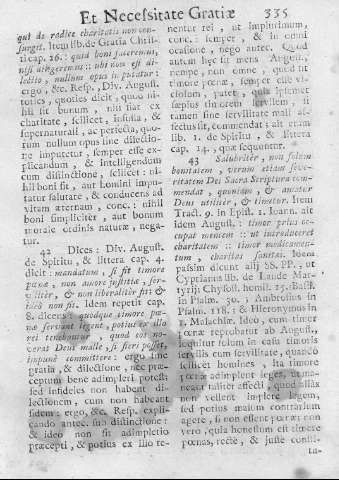 Et Necessitate Gratiæ 335
qui de radice charitatis non con-
surgit. Item lib. de Gratia Christi
cap. 26. : quid boni faceremus,
nisi diligeremus :: ubi non est di-
lectio, nullum opus in putatur :
ergo, &c. Resp., Div. August.
toties, quoties dicit, quod ni-
hil sit bonum, nisi fiat ex
charitate, scilicet, infusa, &
supernaturali, ac perfecta, quo-
rum nullum opus sine dilectio-
ne imputetur, semper esse ex-
plicandum, & intelligendum
cum distinctione, scilicet : ni-
hil boni sit, aut homini impu-
tatur salutare, & conducens ad
vitam æternam, conc. : nihil
boni simpliciter, aut bonum
morale ordinis naturæ, nega-
tur.
42 Dices : Div. August.
de Spiritu, & littera cap. 4.
dicit : mandatum, si fit timore
pœnæ, non amore justitiæ, ser-
viliter, & non liberaliter fit &
ideo non fit. Idem repetit cap.
8. dicens : quodque timore pœ-
næ servant legent, potius
tenebantur, quod
Deus malle si fieri posset,
impune committere : ergo sine
gratia, & dilectione, nec præ-
ceptum bene adimpleri potest :
sed infideles non habent di-
lectionem, cum non habeant
fidem : ergo, &c. Resp. expli-
cando antec. sub distinctione :
& ideo non fit adimpletio
præcepti, & potius ex illo te-
nentur rei, ut in plurimum,
conc. : semper, & in omni
occasione, nego antec. Quod
autem hæc sit mens August.
nempe, non omne, quod
timore pœnæ, semper esse vi-
tiosum, patet, quia ipsemet
sæpius timorem servilem, si
tamen sine servilitate mali af-
fectus sit, commendat : ait enim
lib. 1. de Spiritu, & littera
cap. 14. quæ sequuntur.
43 Salubriter, non solum
bonitatem, verum etiam seve-
ritatem Dei Sacra Scriptura com-
mendat, quoniam, & amatur
Deus utiliter, & timetur. Item
Tract. 9. in Epist. 1. Joann. ait
idem August. : timor prius oc-
cupat mentem :: ut introduceret
charitatem :: timor medicamen-
tum, charitas sanitas. Idem
passim dicunt alij SS. PP., ut
Cyprianus lib. de Laude Mar-
tyrij: Chrysost. homil. 15. Basil.
in Psalm. 30. ; Ambrosius in
Psalm. 118. : & Hieronymus in
1. Malachiæ. Ideo, cum timor
pœnæ reprobatur ab August.,
loquitur solum in casu timoris
servilis cum servilitate, quando
scilicet homines, ita timore
pœnæ adimplent leges, ut ma-
neat talis affectio, quod
non vellent implere legem,
sed potius malum contrarium
agere, si non esset pœna : non
vero, quia honestum est timere
pœnas, recte, & juste consi-